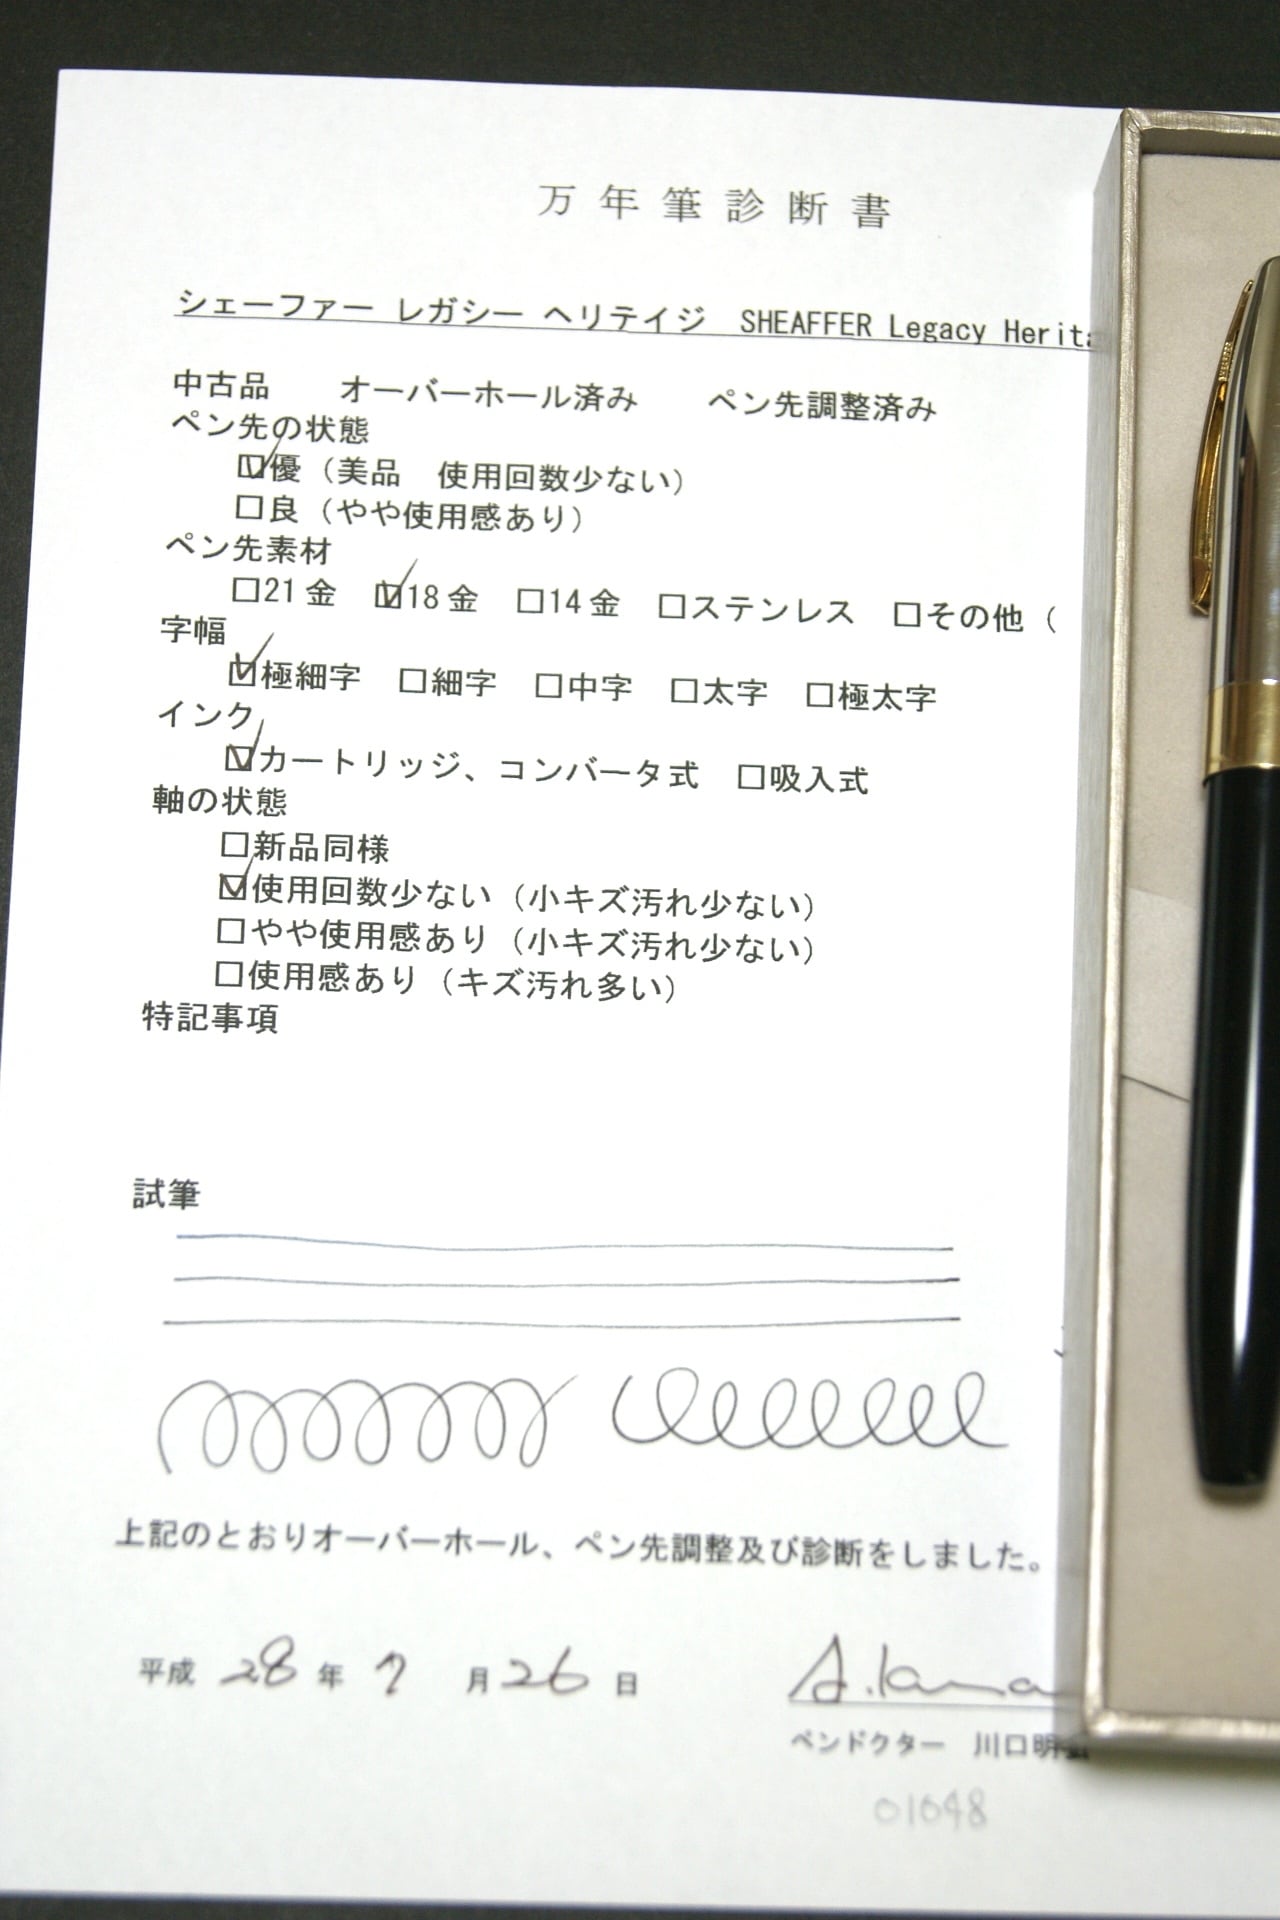 万年筆診断書
シェーファー レガシー ヘリテイジ SHEAFFER Legacy Herita
中古品 オーバーホール済み ペン先調整済み
ペン先の状態
☑優（美品 使用回数少ない）
□良（やや使用感あり）
ペン先素材
□21金 ☑18金 □14金 □ステンレス □その他（
字幅
☑極細字 □細字 □中字 □太字 □極太字
インク
☑カートリッジ、コンバータ式 □吸入式
軸の状態
□新品同様
☑使用回数少ない（小キズ汚れ少ない）
□やや使用感あり（小キズ汚れ少ない）
□使用感あり（キズ汚れ多い）
特記事項
試筆
上記のとおりオーバーホール、ペン先調整及び診断をしました。
平成 28 年 7 月 26 日
ペンドクター 川口明
01048